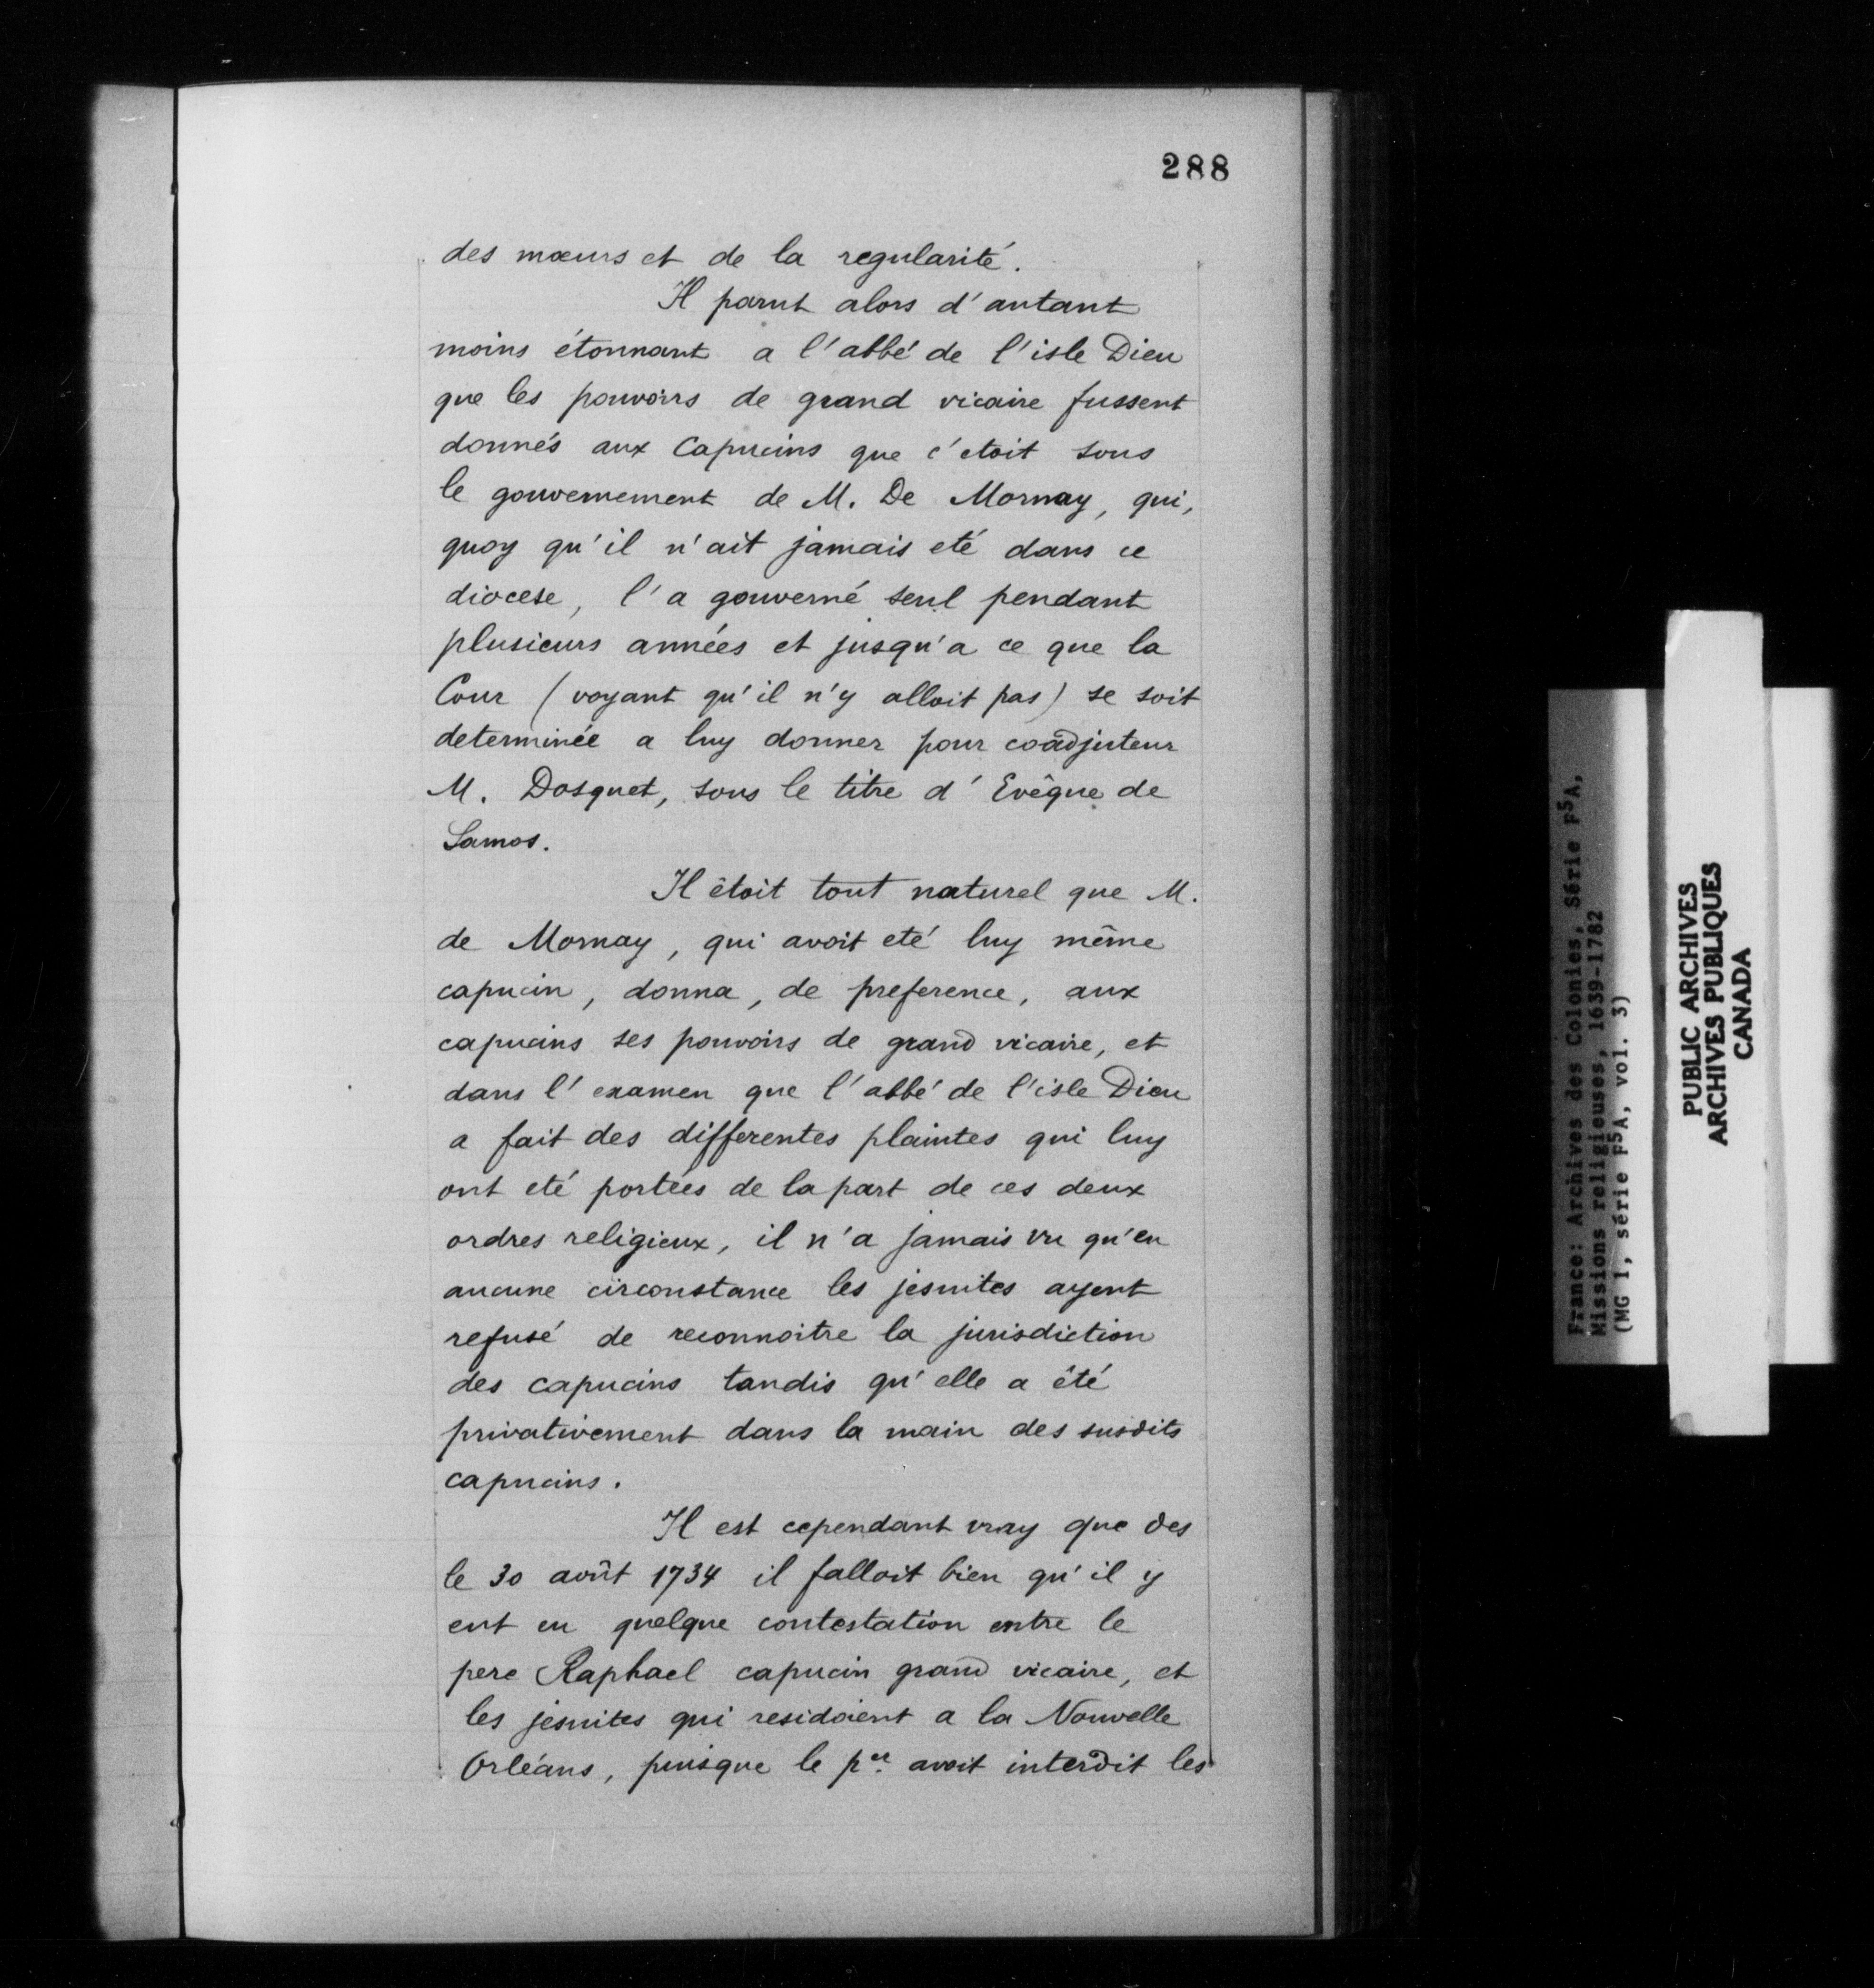 288
des mœurs et de la regularité.
Il parut alors d'autant
moins étonnant a l'abbé de l'isle Dieu
que les pouvoirs de grand vicaire fussent
donnés aux Capucins que c'etoit sous
le gouvernement de M. De Mornay, qui,
quoy qu'il n'ait jamais eté dans ce
diocese, l'a gouverné seul pendant
plusieurs années et jusqu'a ce que la
Cour (voyant qu'il n'y alloit pas) se soit
determinée a luy donner pour coadjuteur
M. Dosquet, sous le titre d'Evêque de
Samos.
Il êtoit tout naturel que M.
de Mornay, qui avoit eté luy même
capucin, donna, de preference, aux
capucins ses pouvoirs de grand vicaire, et
dans l'examen que l'abbé de l'isle Dieu
a fait des differentes plaintes qui luy
ont eté portées de la part de ces deux
ordres religieux, il n'a jamais vu qu'en
aucune circonstance les jesuites ayent
refusé de reconnoitre la jurisdiction
des capucins tandis qu'elle a êté
privativement dans la main des susdits
capucins.
Il est cependant vray que des
le 30 août 1734 il falloit bien qu'il y
eut eu quelque contestation entre le
pere Raphael capucin grand vicaire, et
les jesuites qui residoient a la Nouvelle
Orléans, puisque le p.er avoit interdit les
France: Archives des Colonies, Série F5A,
Missions religieuses, 1639-1782
(MG 1, série F5A, vol. 3)
PUBLIC ARCHIVES
ARCHIVES PUBLIQUES
CANADA